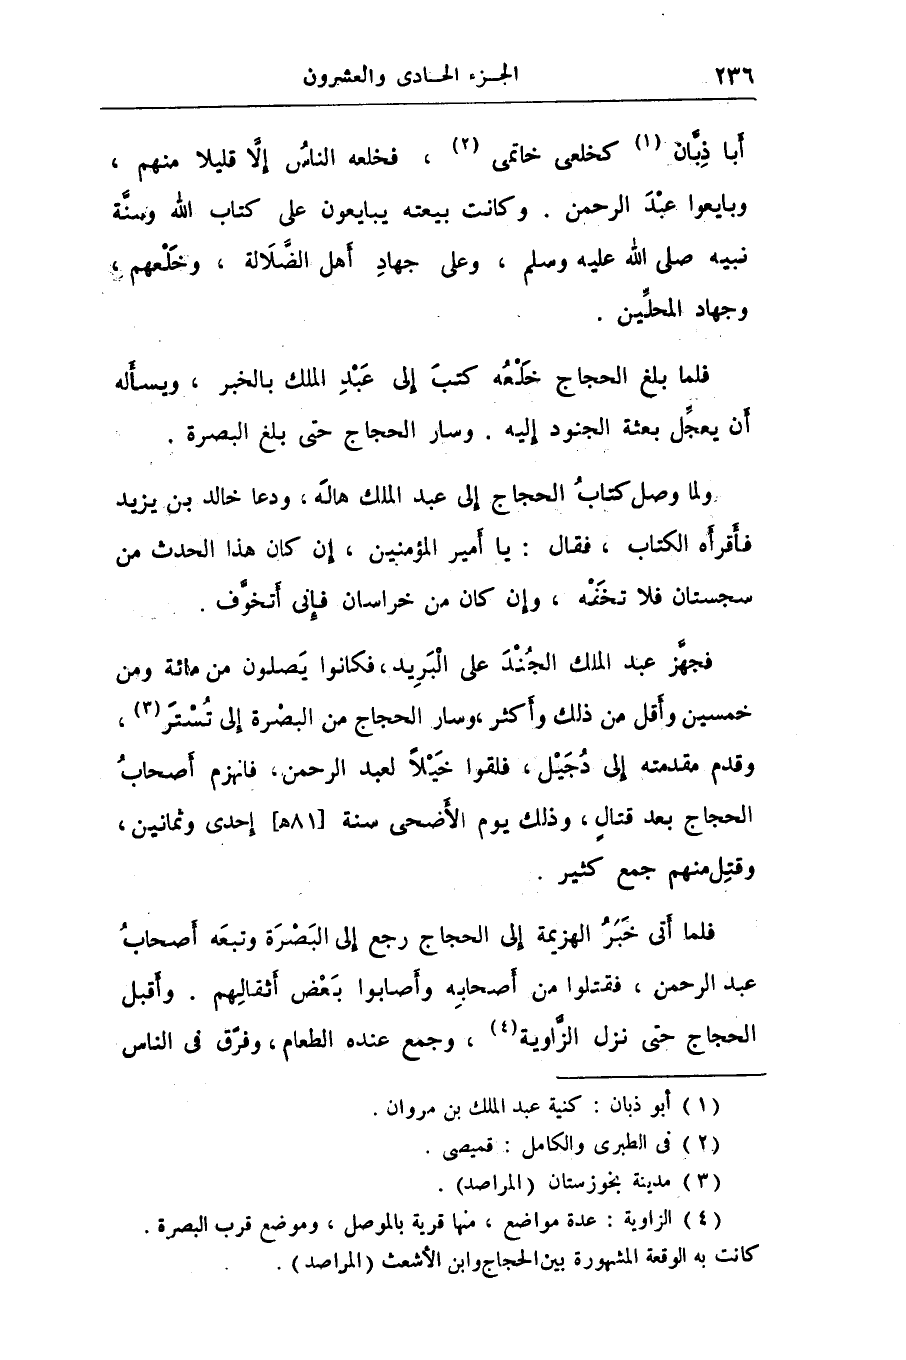 ٢٣٦ الجـزء الحـادى والعشرون
أَبا ذِبَّان (١) كخلعى خاتمى (٢) ، فخلعه الناسُ إِلَّا قليلا منهم ،
وبايعوا عبْدَ الرحمن . وكانت بيعته يبايعون على كتاب الله وسنَّة
نبيه صلى الله عليه وسلم ، وعلى جهادِ أَهل الضَّلَالة ، وخَلْعهم ،
وجهاد المحلِّين .
فلما بلغ الحجاج خَلْعُه كتبَ إلى عَبْدِ الملك بالخبر ، ويسأَله
أَن يعجِّل بعثة الجنود إليه . وسار الحجاج حتى بلغ البصرة .
ولما وصل كتابُ الحجاج إلى عبد الملك هالَه ، ودعا خالد بن يزيد
فأَقرأَه الكتاب ، فقال : يا أَمير المؤمنين ، إن كان هذا الحدث من
سجستان فلا تخَفْه ، وإن كان من خراسان فإنى أَتخوَّف .
فجهَّز عبد الملك الجُنْدَ على الْبَرِيد ، فكانوا يَصلون من مائة ومن
خمسين وأَقل من ذلك وأَكثر ، وسار الحجاج من البصْرة إلى تُسْتَرَ (٣) ،
وقدم مقدمته إلى دُجَيْل ، فلقوا خَيْلاً لعبد الرحمن ، فانهزم أَصحابُ
الحجاج بعد قتالٍ ، وذلك يوم الأَضحى سنة [٨١ه] إحدى وثمانين ،
وقتِل منهم جمع كثير .
فلما أَتى خَبَرُ الهزيمة إلى الحجاج رجع إلى البَصْرَة وتبعَه أَصحابُ
عبد الرحمن ، فقتلوا من أَصحابه وأَصابوا بَعْض أَثقالِهم . وأَقبل
الحجاج حتى نزل الزَّاوية (٤) ، وجمع عنده الطعام ، وفرّق فى الناس
(١) أبو ذبان : كنية عبد الملك بن مروان .
(٢) فى الطبرى والكامل : قميصى .
(٣) مدينة بخوزستان (المراصد) .
(٤) الزاوية : عدة مواضع ، منها قرية بالموصل ، وموضع قرب البصرة .
كانت به الوقعة المشهورة بين الحجاج وابن الأشعث (المراصد) .